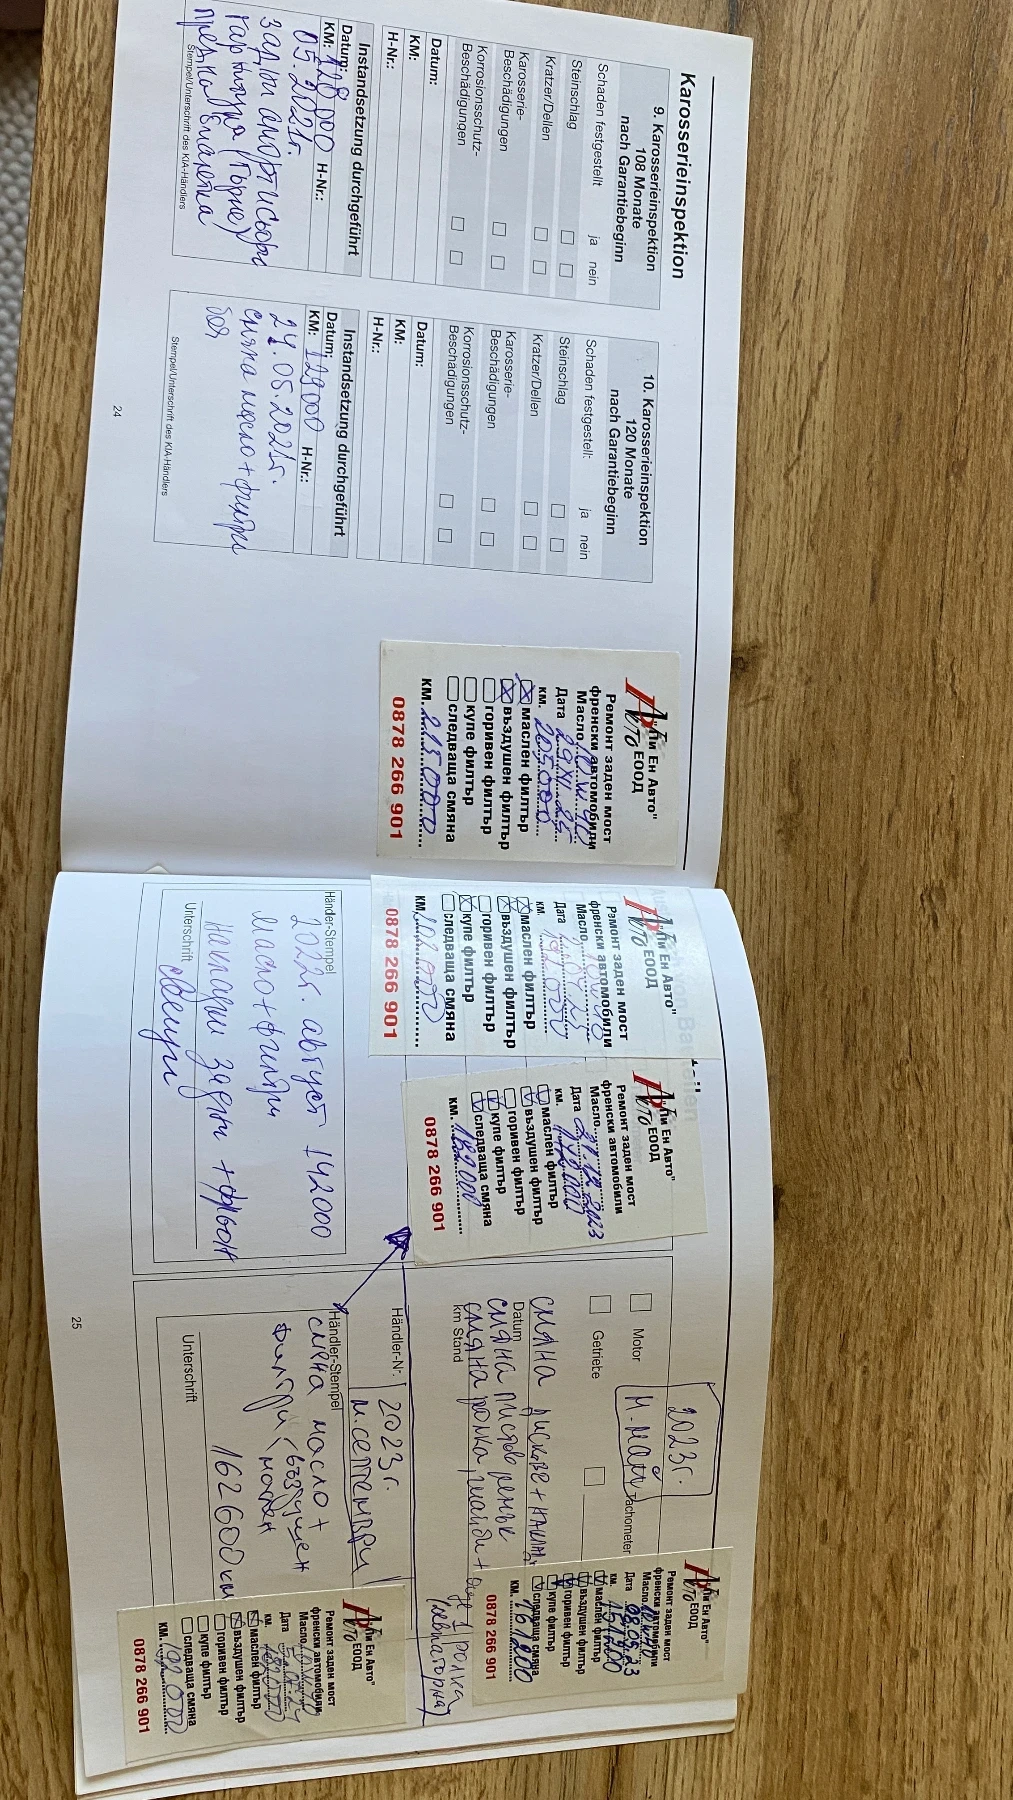 Karosserieinspektion
9. Karosserieinspektion
108 Monate
nach Garantiebeginn
Schaden festgestellt
ja nein
Steinschlag
Kratzer/Dellen
Karosserie-
Beschädigungen
Korrosionsschutz-
Beschädigungen
Datum:
KM:
H-Nr.:
Instandsetzung durchgeführt
Datum:
KM: 128 000 H-Nr.:
05.2021г.
задни амортисьори
гарнитура (горно)
предна
Stempel/Unterschrift des KIA-Händlers
10. Karosserieinspektion
120 Monate
nach Garantiebeginn
Schaden festgestell:
ja nein
Steinschlag
Kratzer/Dellen
Karosserie-
Beschädigungen
Korrosionsschutz-
Beschädigungen
Datum:
KM:
H-Nr.:
Instandsetzung durchgeführt
Datum:
KM: 129000 H-Nr.:
05.2021г.
смяна масло + филтри
Stempel/Unterschrift des KIA-Händlers
24
"Пи Ен Авто"
Авто ЕООД
Ремонт заден мост
френски автомобили
Масло 10W40
Дата 29.XI.25
км. 205000
маслен филтър
въздушен филтър
горивен филтър
купе филтър
следваща смяна
км. 215000
0878 266 901
"Пи Ен Авто"
Авто ЕООД
Ремонт заден мост
френски автомобили
Масло
Дата
км. 192000
маслен филтър
въздушен филтър
горивен филтър
купе филтър
следваща смяна
км. 202000
0878 266 901
Пи Ен Авто"
Авто ЕООД
Ремонт заден мост
френски автомобили
Масло
Дата 21.12.2023
км. 172000
маслен филтър
въздушен филтър
горивен филтър
купе филтър
следваща смяна
км. 182000
0878 266 901
Händer-Stempel
2022г. август 142000
масло + филтри
накладки задни +
Unterschrift
2023г.
м. май
Motor
Tachometer
Getriebe
смяна дискове +
Datum
смяна пистов ремък
km Stand
смяна ролка, шайби + още 1 ролка
Händler-Nr.
2023г.
м. септември
Händler-Stempel
смяна масло +
филтри (въздушен
маслен
Unterschrift
162600 км
Пи Ен Авто"
Авто ЕООД
Ремонт заден мост
френски автомобили
Масло 10W40
Дата 08.05.23
км. 151200
маслен филтър
въздушен филтър
горивен филтър
купе филтър
следваща смяна
км. 161200
0878 266 901
Пи Ен Авто"
Авто ЕООД
Ремонт заден мост
френски автомобили
Масло 10W40
Дата
км. 182000
маслен филтър
въздушен филтър
горивен филтър
купе филтър
следваща смяна
км. 192 000
0878 266 901
25